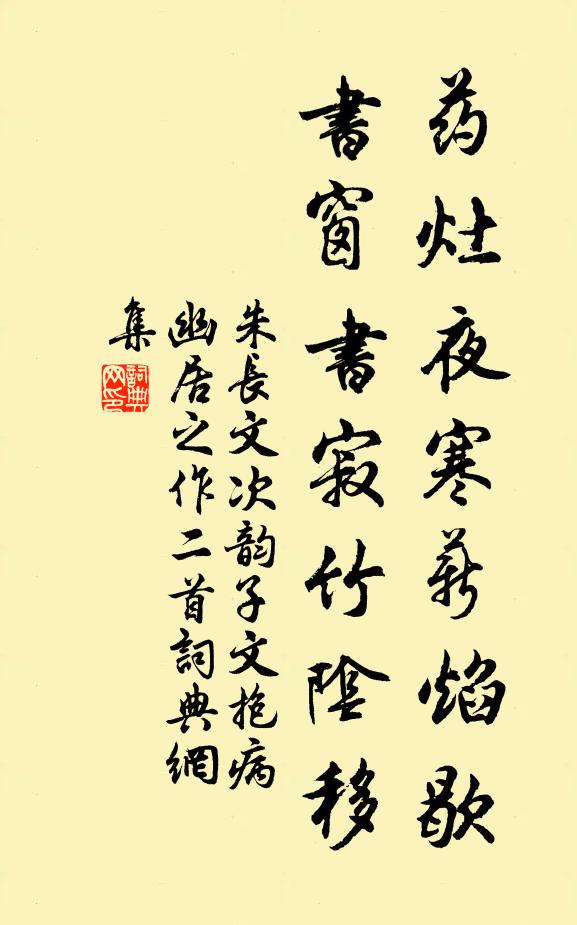 药灶夜寒薪焰歇
書窗書寂竹陰移
朱長文次韵子文抱病
幽居之作二首詞典網
集
詞典
网印